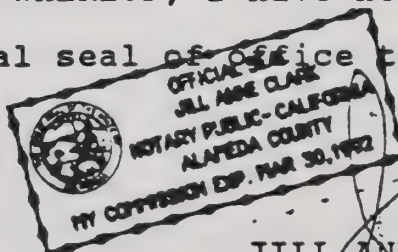 al seal of office t
OFFICIAL SEAL
JILL ANNE CLARK
NOTARY PUBLIC - CALIFORNIA
ALAMEDA COUNTY
MY COMMISSION EXP. MAR 30, 1992